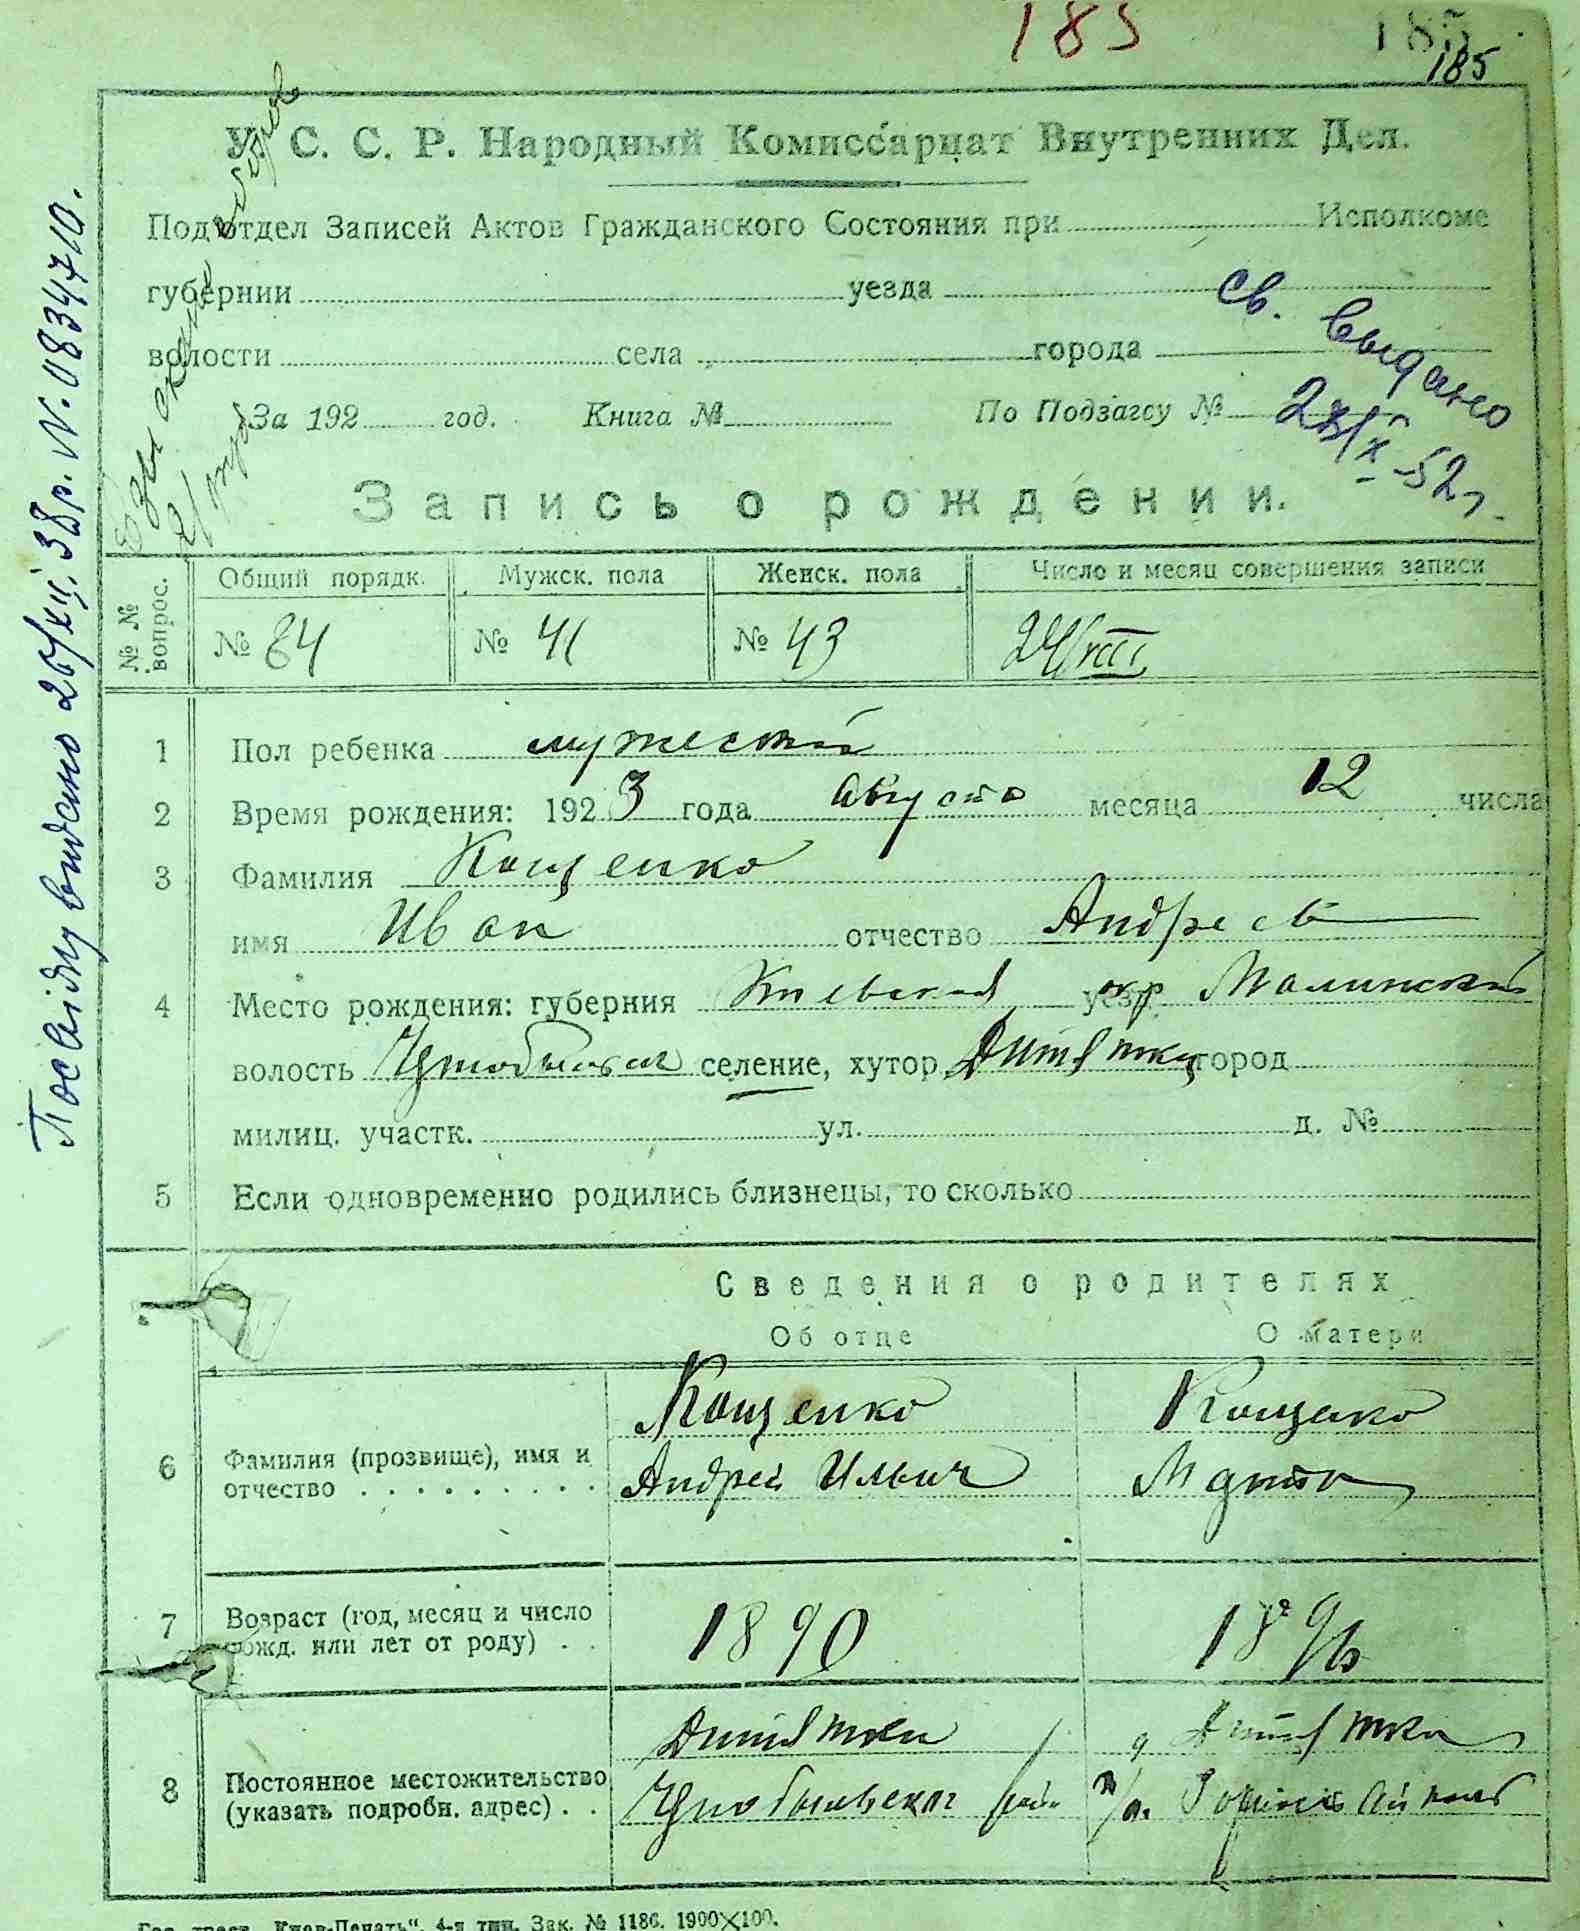 185
185
185
У. С. С. Р. Народный Комиссариат Внутренних Дел.
Подотдел Записей Актов Гражданского Состояния при Исполкоме
губернии уезда
волости села города
За 192 год. Книга № По Подзагсу №
св. выдано
Запись о рождении.
Посвідку видано 26/XII 38 р. N. 0834710.
№ № вопрос.
Общий порядк. Мужск. пола Женск. пола Число и месяц совершения записи
№ 84 № 41 № 43 24/VIII
1 Пол ребенка мужеской
2 Время рождения: 1923 года августа месяца 12 числа
3 Фамилия Кощенко
имя Иван отчество Андреев
4 Место рождения: губерния Киевская уезд окр Малинский
волость селение, хутор Дитятки город
милиц. участк. ул. д. №
5 Если одновременно родились близнецы, то сколько
Сведения о родителях
Об отце О матери
6 Фамилия (прозвище), имя и отчество
Кощенко Кощенко
Андрей Ильич
7 Возраст (год, месяц и число рожд. или лет от роду)
1890 1896
8 Постоянное местожительство (указать подробн. адрес)
Дитятки Дитятки
Гос. трест „Киев-Печать“. 4-я тип. Зак. № 1186. 1900×100.